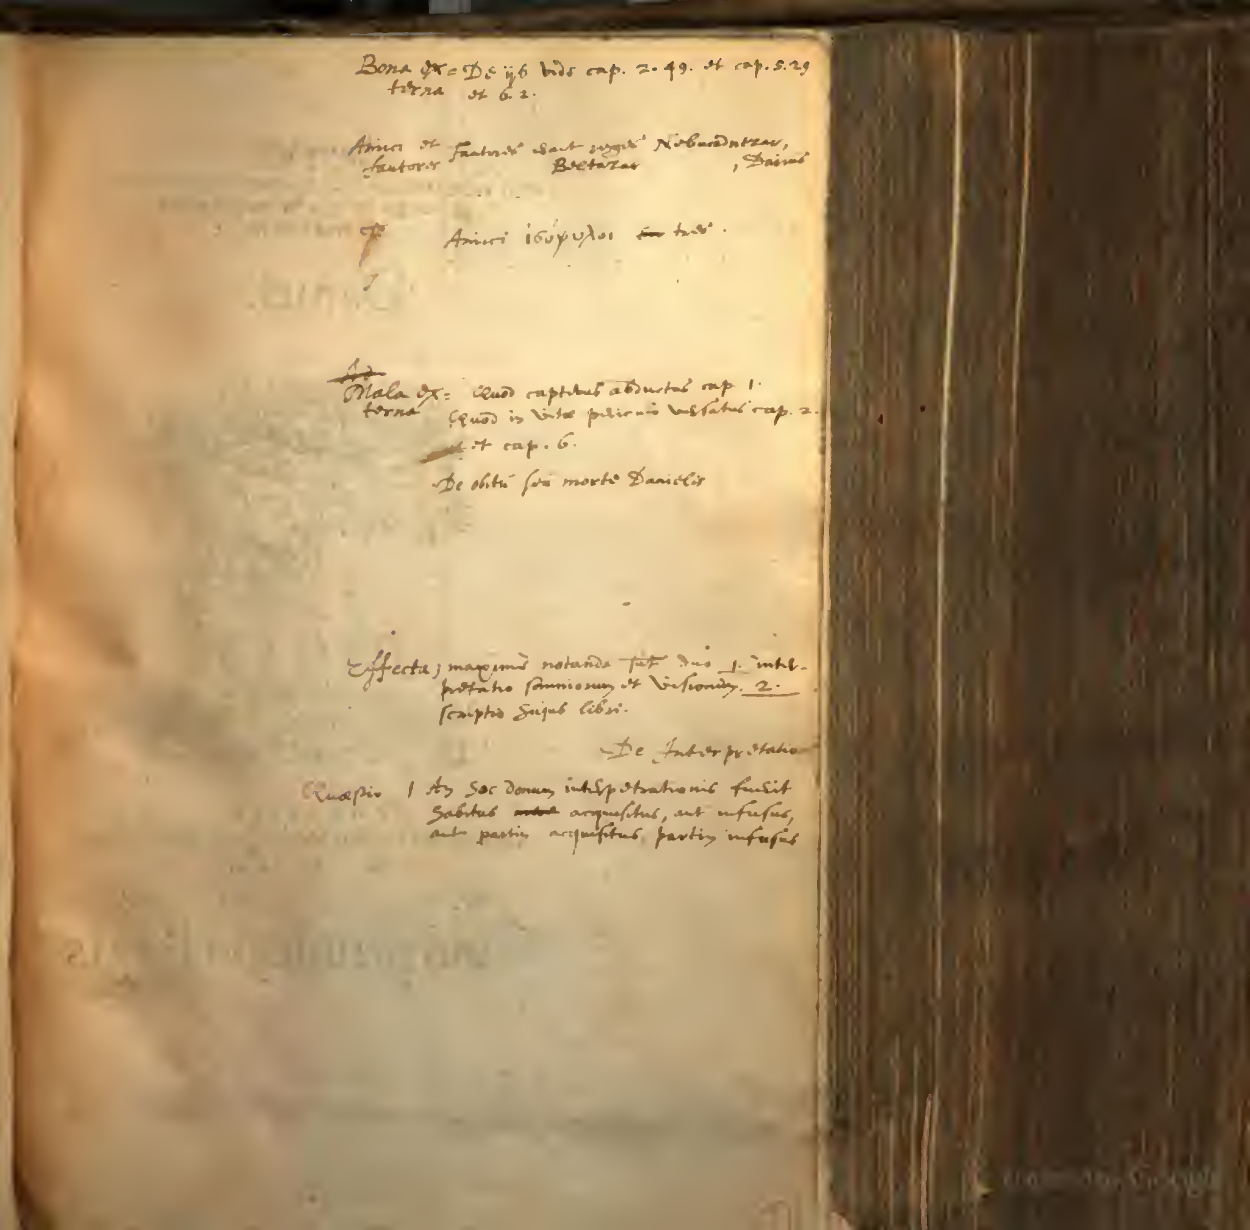 Bona ex= De ijs vide cap. 2. 49. et cap. 5. 29
terna et 6. 2.
Amici et fautores erant reges Nebucadnezar,
fautores Beltazar , Darius
Amici ἰσόφυλοι tres.
Mala ex= Quod captivus abductus cap 1.
terna Quod in vitæ periculo versatus cap. 2.
et cap. 6.
De obitu seu morte Danielis
Effecta; maxime notanda sunt duo 1. inter-
pretatio somniorum et visionum. 2.
scriptio hujus libri.
De Interpretatio
Quæstio 1 An hoc donum interpretationis fuerit
habitus acquisitus, aut infusus,
aut partim acquisitus, partim infusus